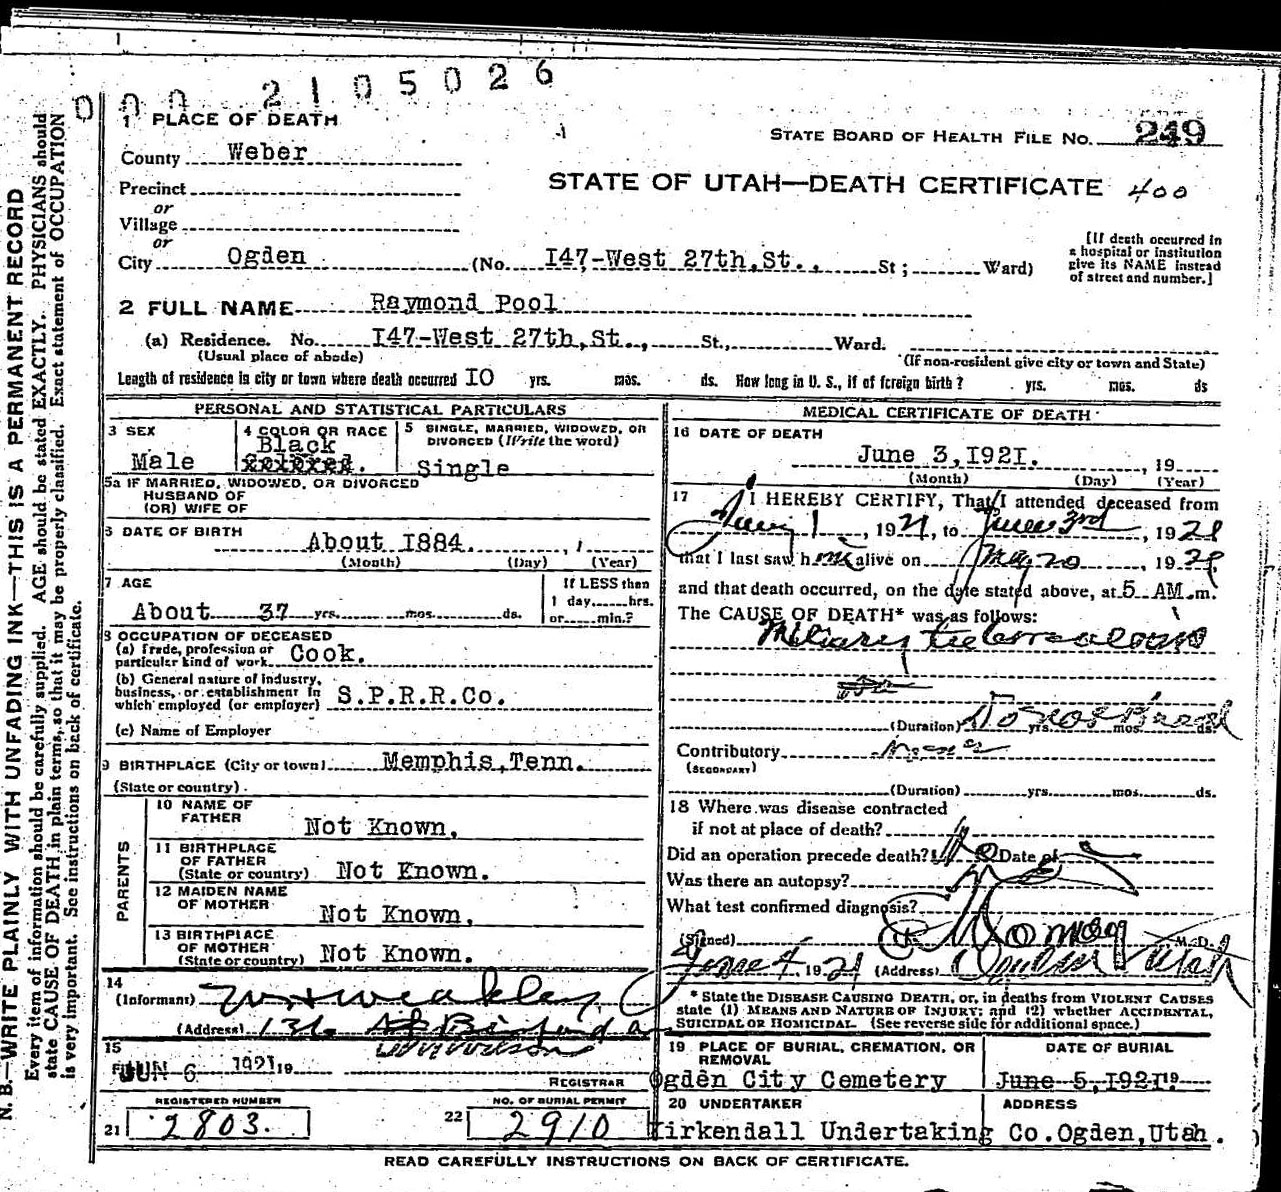 0 0 0 2 1 0 5 0 2 6
1 PLACE OF DEATH
STATE BOARD OF HEALTH FILE No. 249
County Weber
STATE OF UTAH—DEATH CERTIFICATE 400
Precinct
or
Village
or
City Ogden (No. I47-West 27th,St., St; Ward)
[If death occurred in
a hospital or institution
give its NAME instead
of street and number.]
2 FULL NAME Raymond Pool
(a) Residence. No. I47-West 27th,St., St., Ward.
(Usual place of abode) (If non-resident give city or town and State)
Length of residence in city or town where death occurred IO yrs. mos. ds. How long in U. S., if of foreign birth? yrs. mos. ds
PERSONAL AND STATISTICAL PARTICULARS
3 SEX
Male
4 COLOR OR RACE
Black
5 SINGLE, MARRIED, WIDOWED, OR
DIVORCED (Write the word)
Single
5a IF MARRIED, WIDOWED, OR DIVORCED
HUSBAND OF
(OR) WIFE OF
6 DATE OF BIRTH
About I884.
(Month) (Day) (Year)
7 AGE
About 37 yrs. mos. ds.
If LESS then
1 day hrs.
or min.?
8 OCCUPATION OF DECEASED
(a) Trade, profession or
particular kind of work Cook.
(b) General nature of industry,
business, or establishment in
which employed (or employer) S.P.R.R.Co.
(c) Name of Employer
9 BIRTHPLACE (City or town) Memphis,Tenn.
(State or country)
PARENTS
10 NAME OF
FATHER
Not Known,
11 BIRTHPLACE
OF FATHER
(State or country) Not Known.
12 MAIDEN NAME
OF MOTHER
Not Known,
13 BIRTHPLACE
OF MOTHER
(State or country) Not Known.
14
(Informant)
(Address) 136
15
JUN 6 1921 19
REGISTRAR
REGISTERED NUMBER
21 2803.
NO. OF BURIAL PERMIT
22 2910
MEDICAL CERTIFICATE OF DEATH
16 DATE OF DEATH
June 3,I92I. , 19
(Month) (Day) (Year)
17 I HEREBY CERTIFY, That I attended deceased from
1, 1921, to June 3rd, 1921
that I last saw him alive on May 20, 1921,
and that death occurred, on the date stated above, at 5 AM.m.
The CAUSE OF DEATH* was as follows:
Miliary tuberculosis
(Duration) yrs. mos. ds.
Contributory
(SECONDARY)
(Duration) yrs. mos. ds.
18 Where was disease contracted
if not at place of death?
Did an operation precede death? No Date of
Was there an autopsy? no
What test confirmed diagnosis?
(Signed) M. D.
June 4, 1921 (Address) Ogden Utah
* State the DISEASE CAUSING DEATH, or, in deaths from VIOLENT CAUSES
state (1) MEANS AND NATURE OF INJURY; and (2) whether ACCIDENTAL,
SUICIDAL OR HOMICIDAL. (See reverse side for additional space.)
19 PLACE OF BURIAL, CREMATION, OR
REMOVAL
Ogden City Cemetery
DATE OF BURIAL
June 5,I92I. 19
20 UNDERTAKER
Kirkendall Undertaking Co.
ADDRESS
Ogden,Utah.
READ CAREFULLY INSTRUCTIONS ON BACK OF CERTIFICATE.
N. B.—WRITE PLAINLY WITH UNFADING INK—THIS IS A PERMANENT RECORD
Every item of information should be carefully supplied. AGE should be stated EXACTLY. PHYSICIANS should
state CAUSE OF DEATH in plain terms, so that it may be properly classified. Exact statement of OCCUPATION
is very important. See instructions on back of certificate.